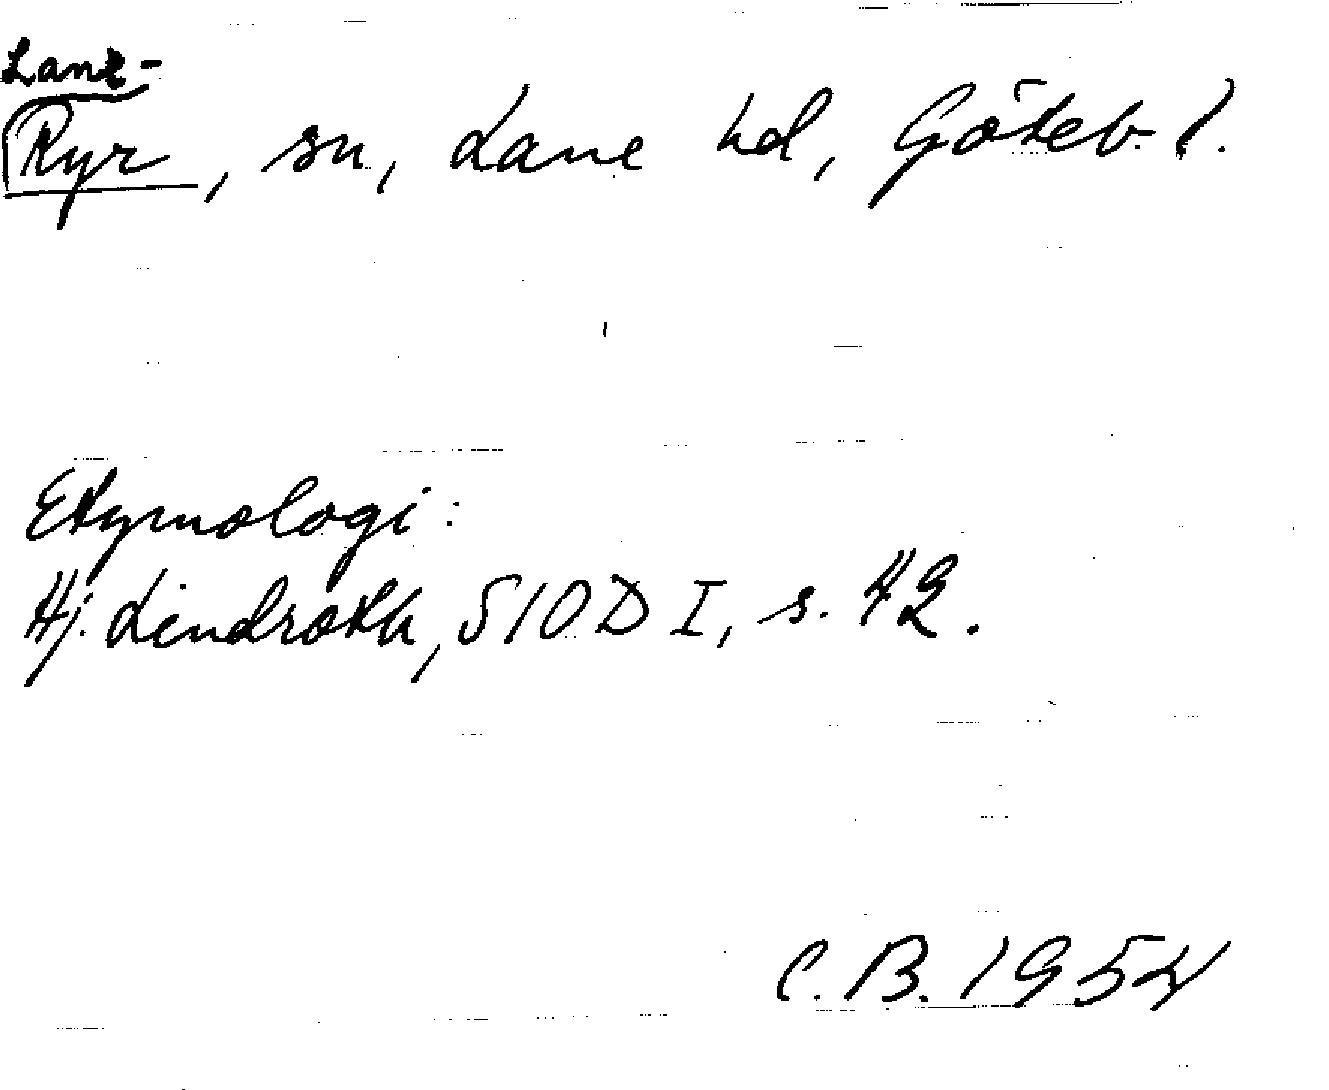 Lane-
Ryr, sn, Lane hd, Göteb. l.
Etymologi:
Hj. Lindroth, SIOD I, s. 42.
C.B. 1954